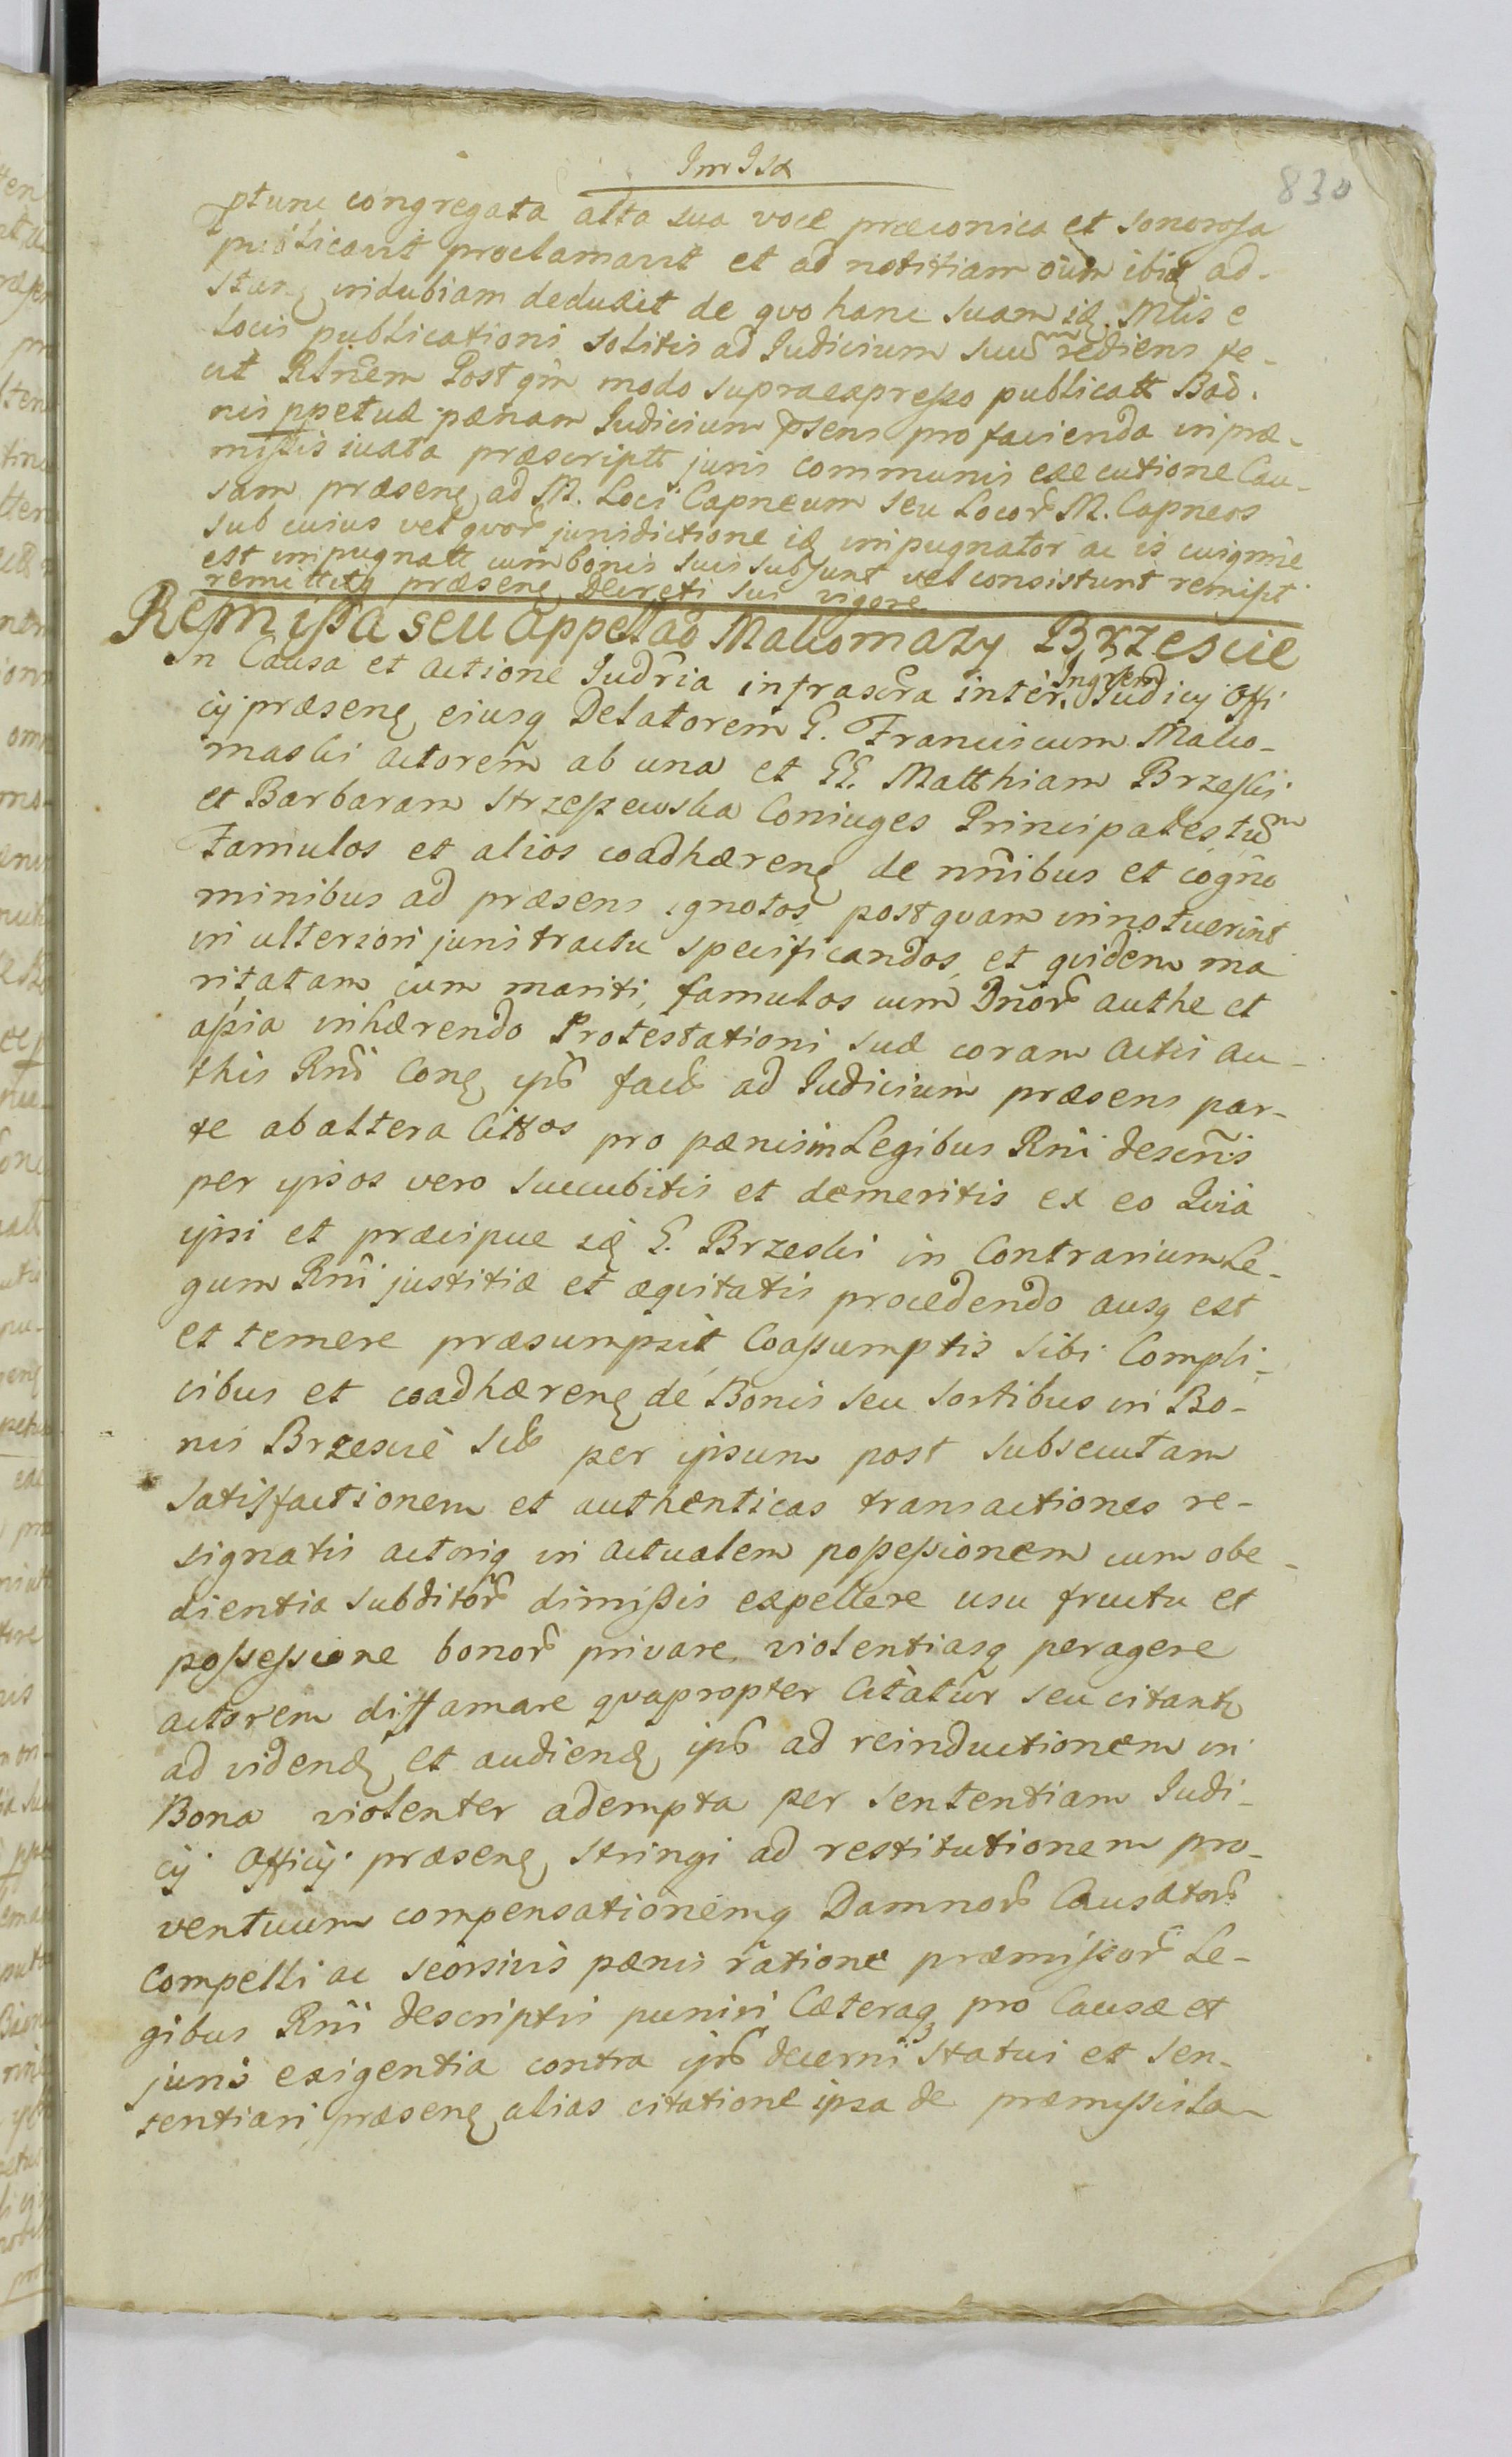 830
ptum congregata alta sua voce præconica et sonorosa
publicavit proclamavit et ad notitiam oium ibid ad-
stanq indubiam deduxit de quo hanc suam idq Mlis e
locis publicationi solitis ad Judicium suum rediens fe-
cit Rlnem Post qm modo supraexpresso publicatt Ban-
nis ppetuæ pænam Judicium psens pro facienda in præ-
missis iuxta præscriptt juris communis executione Cau-
sam præsenq ad M. Loci Capneum seu Locor M. Capneos
sub cuius vel quor jurisdictione idq impugnator ac is cuig
est impugnatt cum bonis suis subsunt vel consistunt remisit
remittitq præsenq Decreti sui vigore
Remissa seu Appell ad Makomazy Brzescie
In Causa et actione Judria infrascra inter Ingrem Judicij Offi
cij præsenq eiusq Delatorem G. Franciscum Mako-
maski actorem ab una et GG. Matthiam Brzeski
et Barbaram Strzeszewska Coniuges Principales tum
Famulos et alios coadhærenq de nnibus et cogno
minibus ad præsens ignotos postquam innotuerint
in ulteriori juris tractu specificandos et quidem ma
ritatam cum mariti, famulos cum Dnor authe et
assia inhærendo Protestationi suæ coram actis au-
this Rni Conq ips fact ad Judicium præsens par-
te ab altera Cittos pro pænis in Legibus Rni descris
per ipsos vero succubitis et demeritis ex eo Quia
ipsi et præcipue idq G. Brzeski in Contrarium Le-
gum Rni justitiæ et æquitatis procedendo ausq est
et temere præsumpsit Coassumptis sibi Compli-
cibus et coadhærenq de Bonis seu sortibus in Bo-
nis Brzescie per ipsum post subsecutam
satisfactionem et authenticas transactiones re-
signatis actoriq in actualem possessionem cum obe-
dientia subditor dimissis expellere usu fructu et
possessione bonor privare violentiasq peragere
actorem diffamare quapropter Citatur seu citantq
ad videndq et audiendq ips ad reinductionem in
Bona violenter adempta per sententiam Judi-
cij Officij præsenq stringi ad restitutionem pro-
ventuum compensationemq Damnor Causator
compelli ac seorsivis pænis ratione præmissor Le-
gibus Rni descriptis puniri Cæteraq pro Causæ et
juris exigentia contra ips decerni statui et sen-
tentiari præsenq alias citatione ipsa de præmissis la-